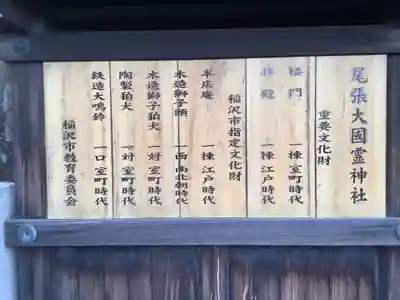 尾張大國霊神社
重要文化財
楼門 一棟 室町時代
拝殿 一棟 江戸時代
稲沢市指定文化財
半床庵 一棟 江戸時代
木造獅子頭 一面 南北朝時代
木造獅子狛犬 一対 室町時代
陶製狛犬 一対 室町時代
鉄造大鳴鈴 一口 室町時代
稲沢市教育委員会